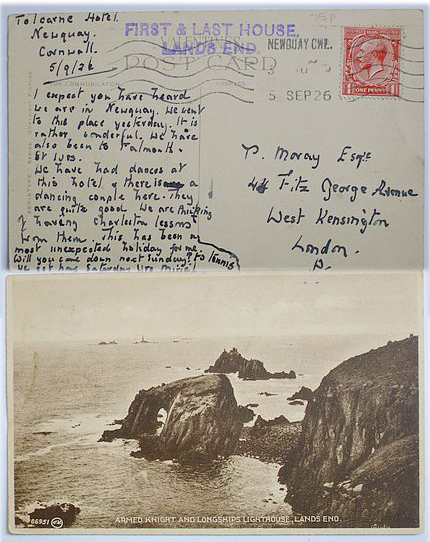 Tolcarne Hotel.
Newquay.
Cornwall.
5/9/26
FIRST & LAST HOUSE,
LANDS END.
VALENTINE'S
POST CARD
NEWQUAY CWL.
5 SEP 26
ONE PENNY
COMMUNICATION
I expect you have heard
we are in Newquay. We went
to this place yesterday. It is
rather wonderful. We have
also been to Falmouth.
St Ives.
We have had dances at
this hotel & there is a
dancing couple here. They
are quite good. We are thinking
of having Charleston lessons
from them. This has been a
most unexpected holiday for me
Will you come down next Sunday? to tennis
P. Moray Esqre
44 Fitz George Avenue
West Kensington
London.
66951 JV
ARMED KNIGHT AND LONGSHIPS LIGHTHOUSE, LANDS END.